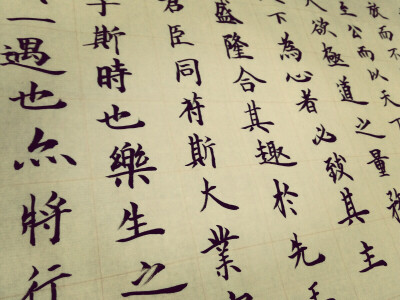 放而不
至公而以天下
夫欲極道之量務
天下為心者必致其主
盛隆合其趣於先王
君臣同符斯大業
于斯時也樂生之
一遇也亦將行